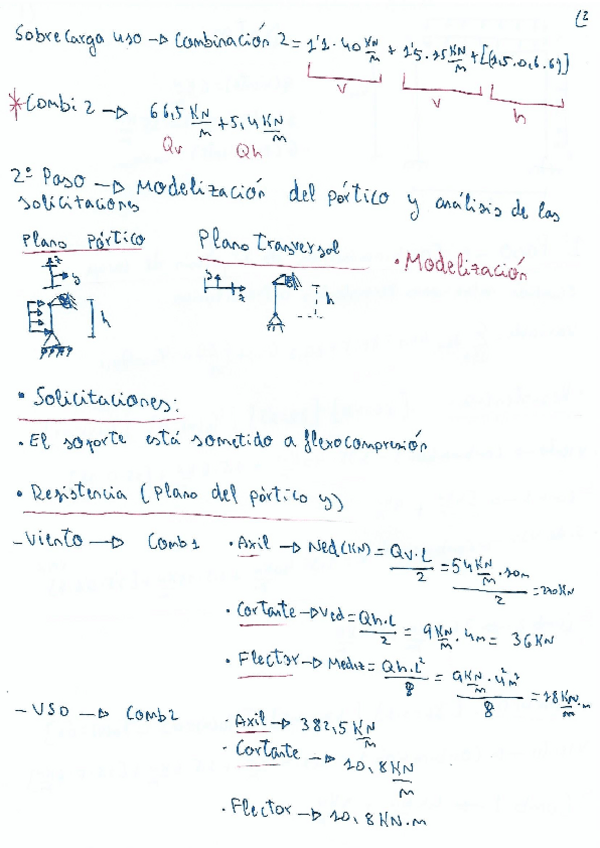 (2
Sobrecarga uso → Combinación 2 = 1'1·40 KN/m + 1'5·15 KN/m + [(1,5·0,6·6)]
V V h
*Combi 2 → 66,5 KN/m + 5,4 KN/m
Qv Qh
2º Paso → Modelización del pórtico y análisis de las
solicitaciones
Plano Pórtico Plano Transversal • Modelización
z y h
z h
• Solicitaciones:
• El soporte está sometido a flexocompresión
• Resistencia (Plano del pórtico y)
- Viento → Comb1 • Axil → Ned(KN) = Qv·L/2 = 54 KN/m·10m/2 = 270KN
• Cortante → Ved = Qh·L/2 = 9 KN/m·4m = 36 KN
• Flector → Medız = Qh·L²/8 = 9 KN/m·4²m²/8 = 18 KN·m
- USO → Comb2 • Axil → 382,5 KN/m
• Cortante → 10,8 KN/m
• Flector → 10,8 KN·m